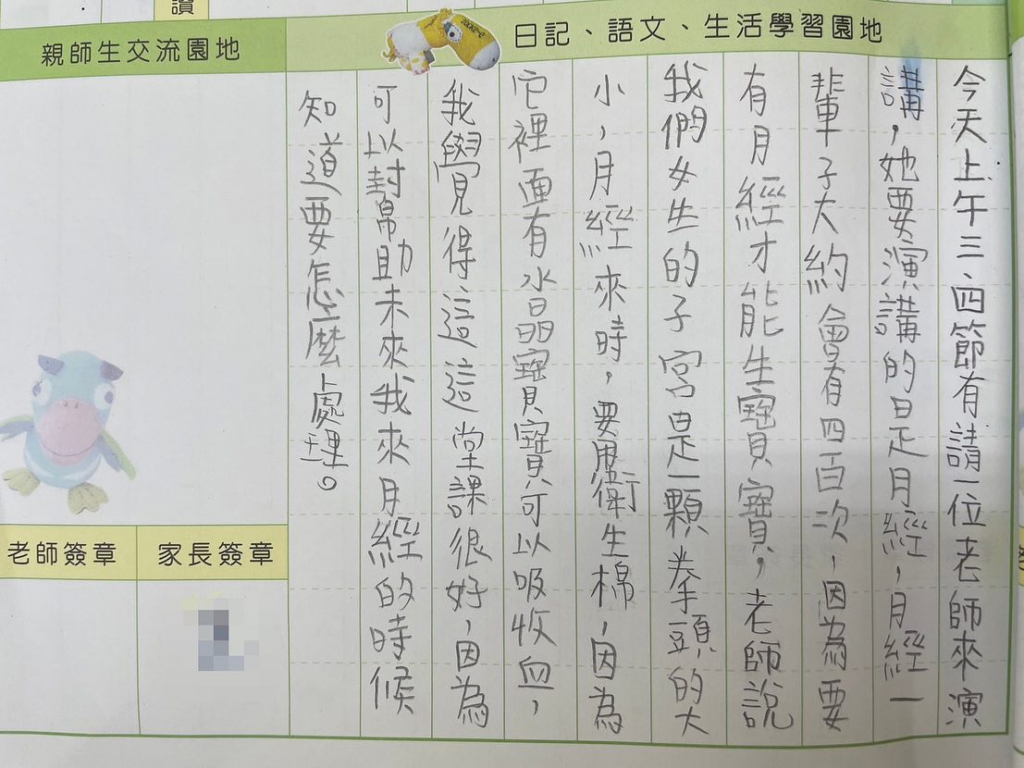 讀
親師生交流園地
日記、語文、生活學習園地
今天上午三、四節有請一位老師來演
講，她要演講的是月經，月經一
輩子大約會有四百次，因為要
有月經才能生寶貝寶，老師說
我們女生的子宮是一顆拳頭的大
小，月經來時，要用衛生棉，因為
它裡面有水晶寶寶可以吸收血，
我覺得這這堂課很好，因為
可以封幫助未來我來月經的時候
知道要怎麼處理。
老師簽章
家長簽章